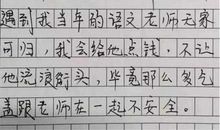 遇到我当年的语文老师无家
可归，我会给他点钱，不让
他流浪街头，毕竟那么多乞
丐跟老师在一起不安全。